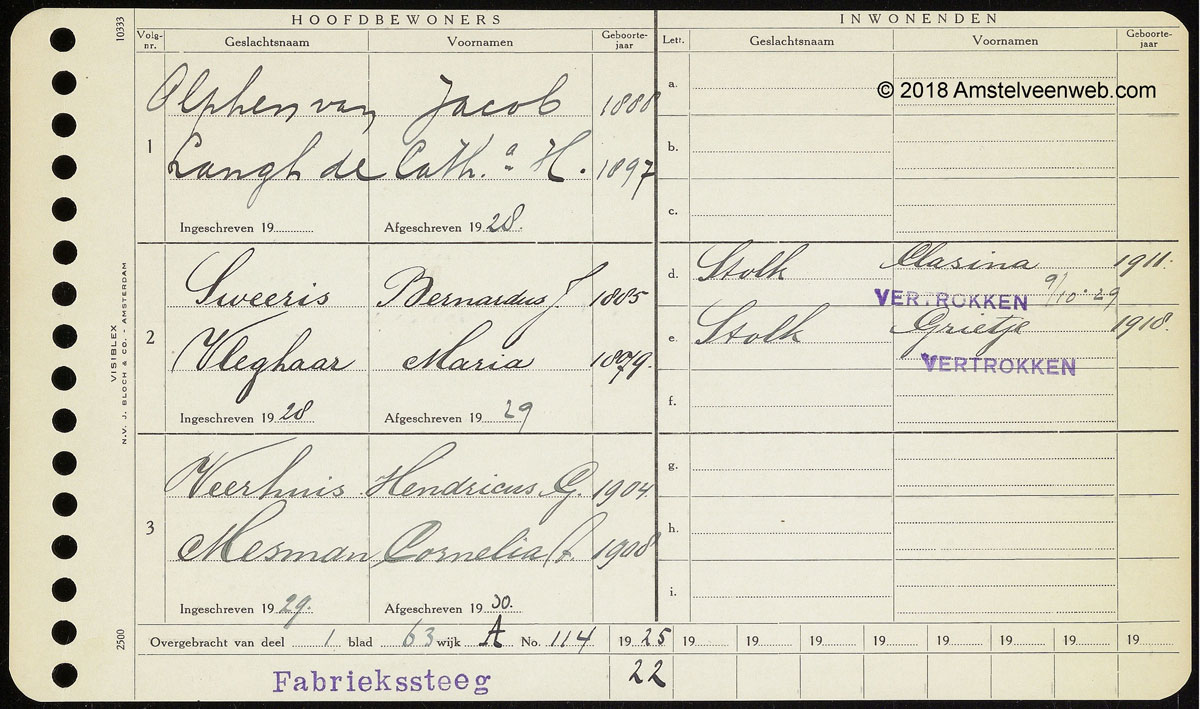 HOOFDBEWONERS
INWONENDEN
Volg-nr. Geslachtsnaam Voornamen Geboorte-jaar
Lett. Geslachtsnaam Voornamen Geboorte-jaar
10333
© 2018 Amstelveenweb.com
1
Alphen van Jacob 1888
Langh de Cath.a H. 1897
Ingeschreven 19 Afgeschreven 1928.
2
Sweeris Bernardus J 1885
Vleghaar Maria 1879.
Ingeschreven 1928 Afgeschreven 19 29
3
Veerhuis Hendricus G. 1904
Mesman Cornelia 1908
Ingeschreven 19 29. Afgeschreven 19 30.
a.
b.
c.
d. Stolk Clasina 1911.
VERTROKKEN 9/10 29
e. Stolk Grietje 1918.
VERTROKKEN
f.
g.
h.
i.
VISIBLEX
N.V. J. BLOCH & CO. - AMSTERDAM
2500
Overgebracht van deel 1 blad 63 wijk A No. 114 19 25 19 19 19 19 19 19 19 19
Fabriekssteeg 22